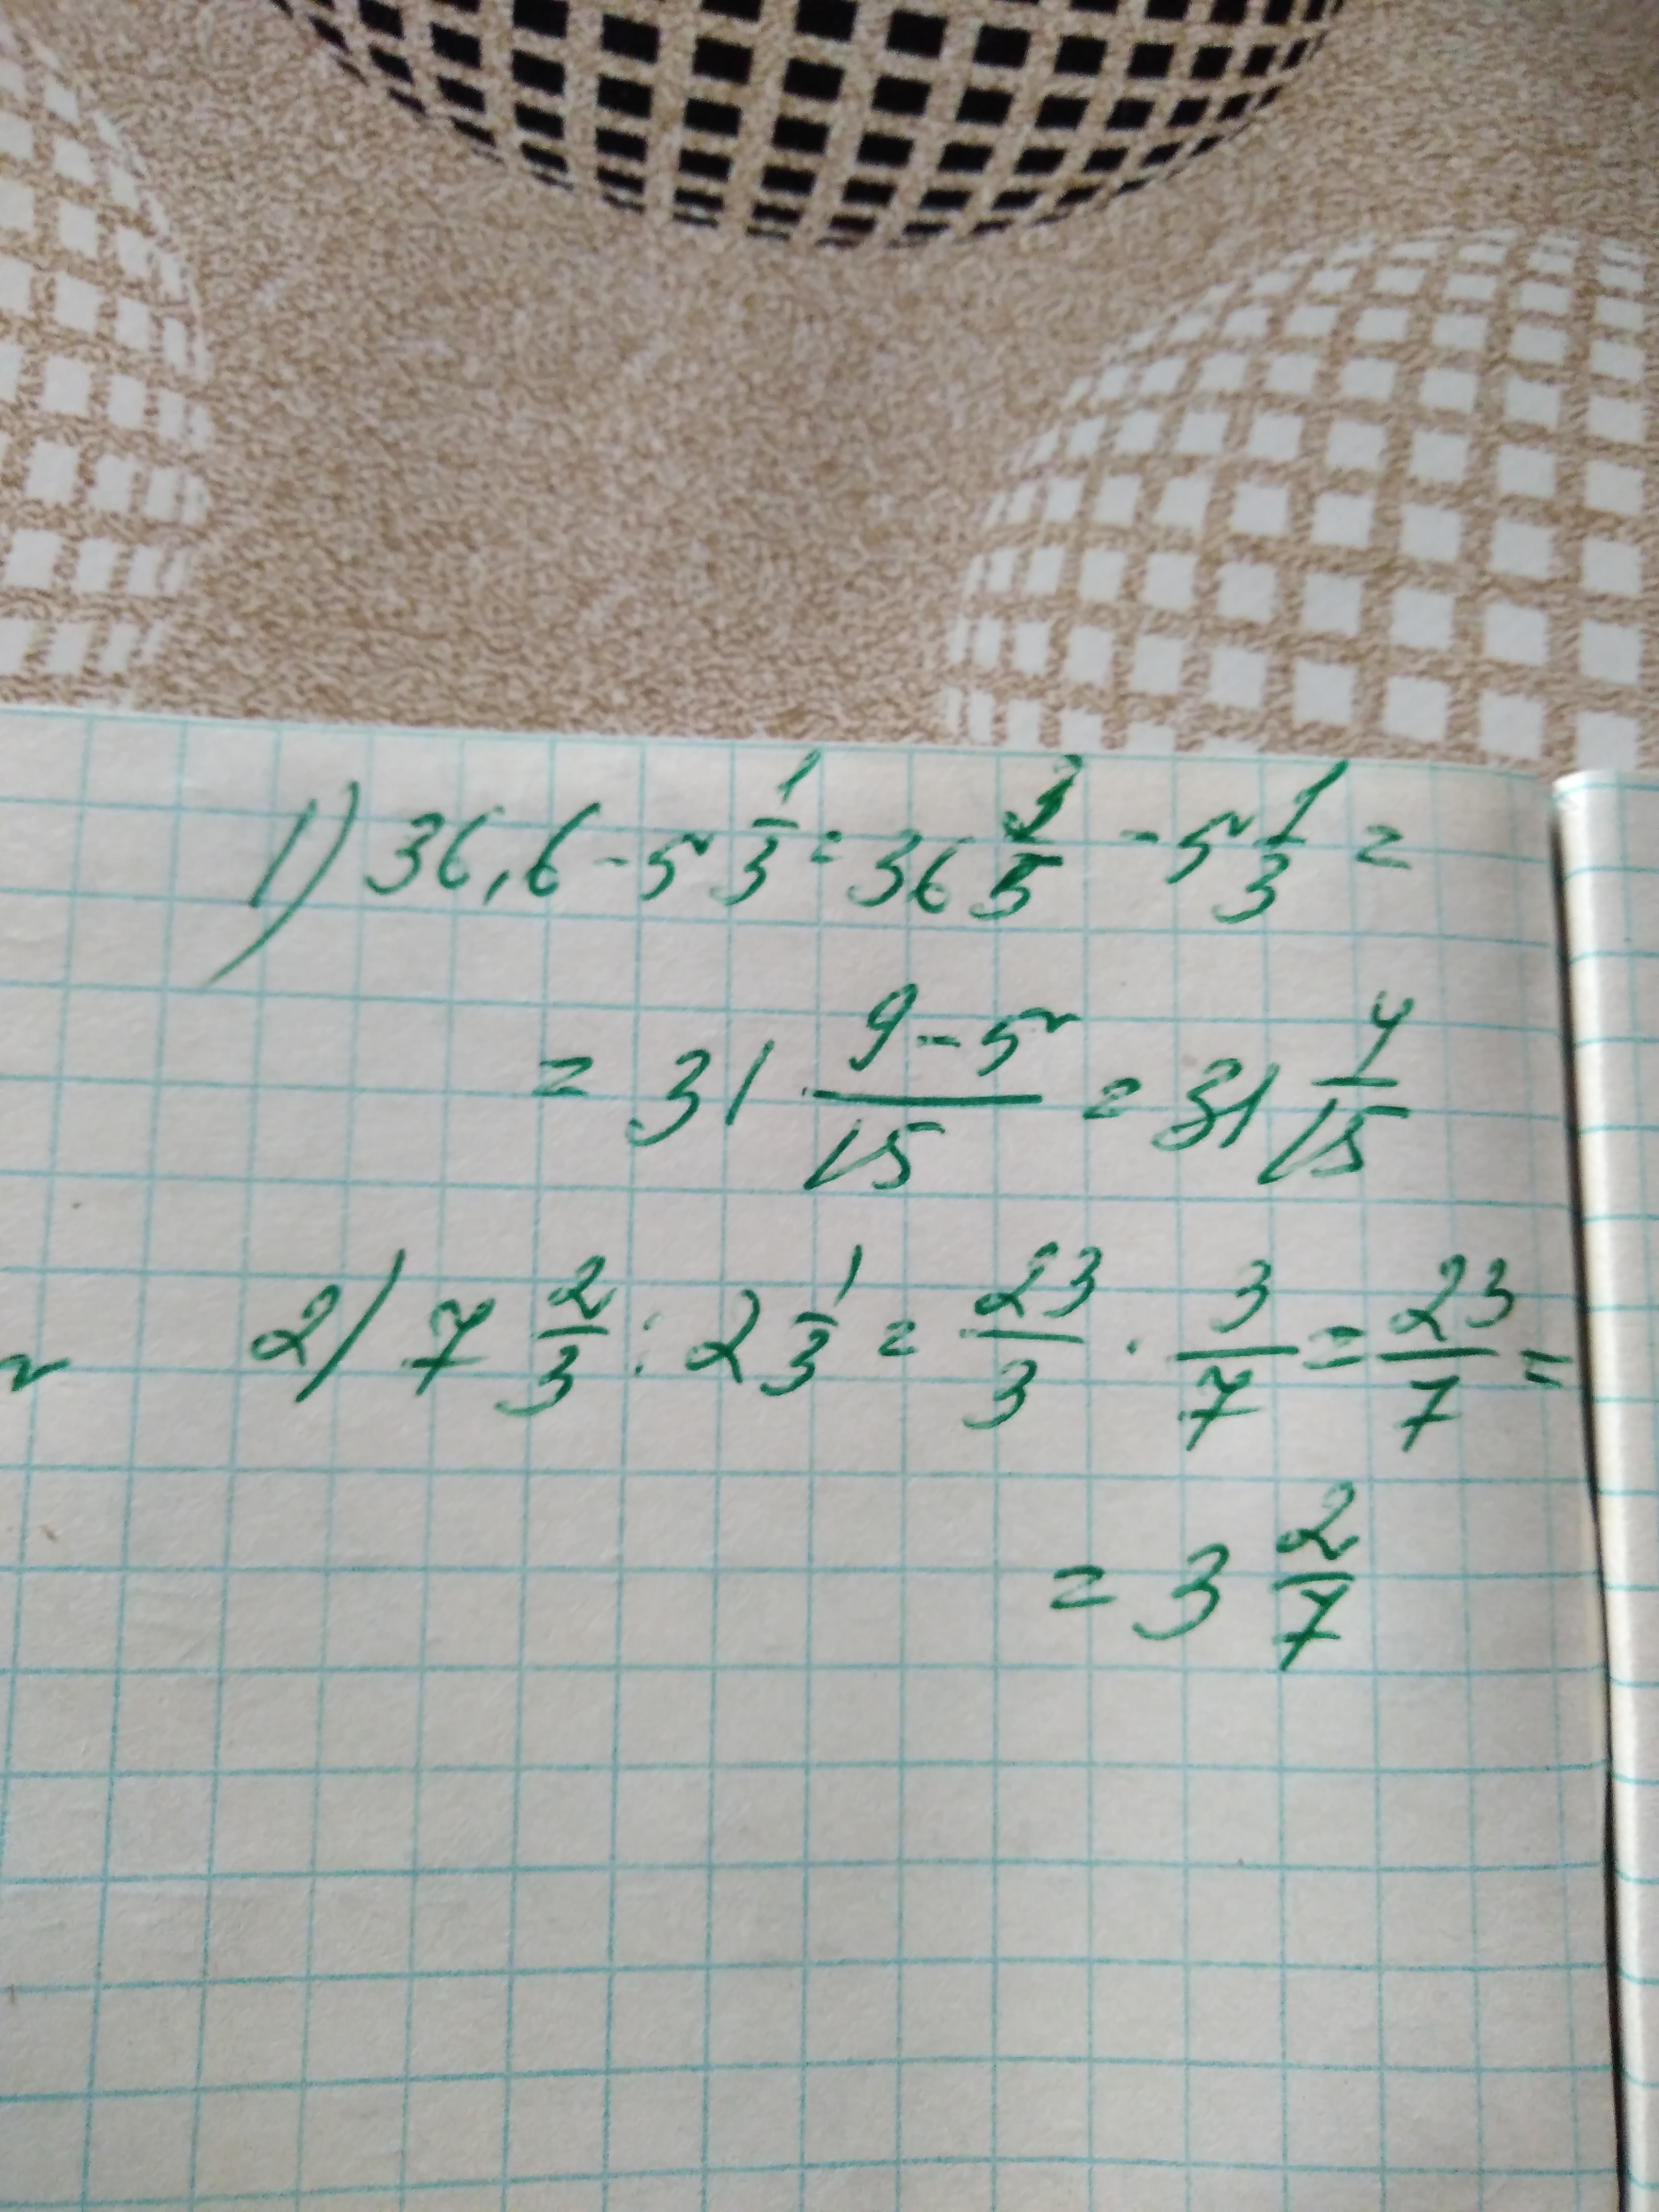 1) 36,6 - 5 1/3 = 36 3/5 - 5 1/3 =
= 31 (9-5)/15 = 31 4/15
2) 7 2/3 : 2 1/3 = 23/3 · 3/7 = 23/7 =
= 3 2/7